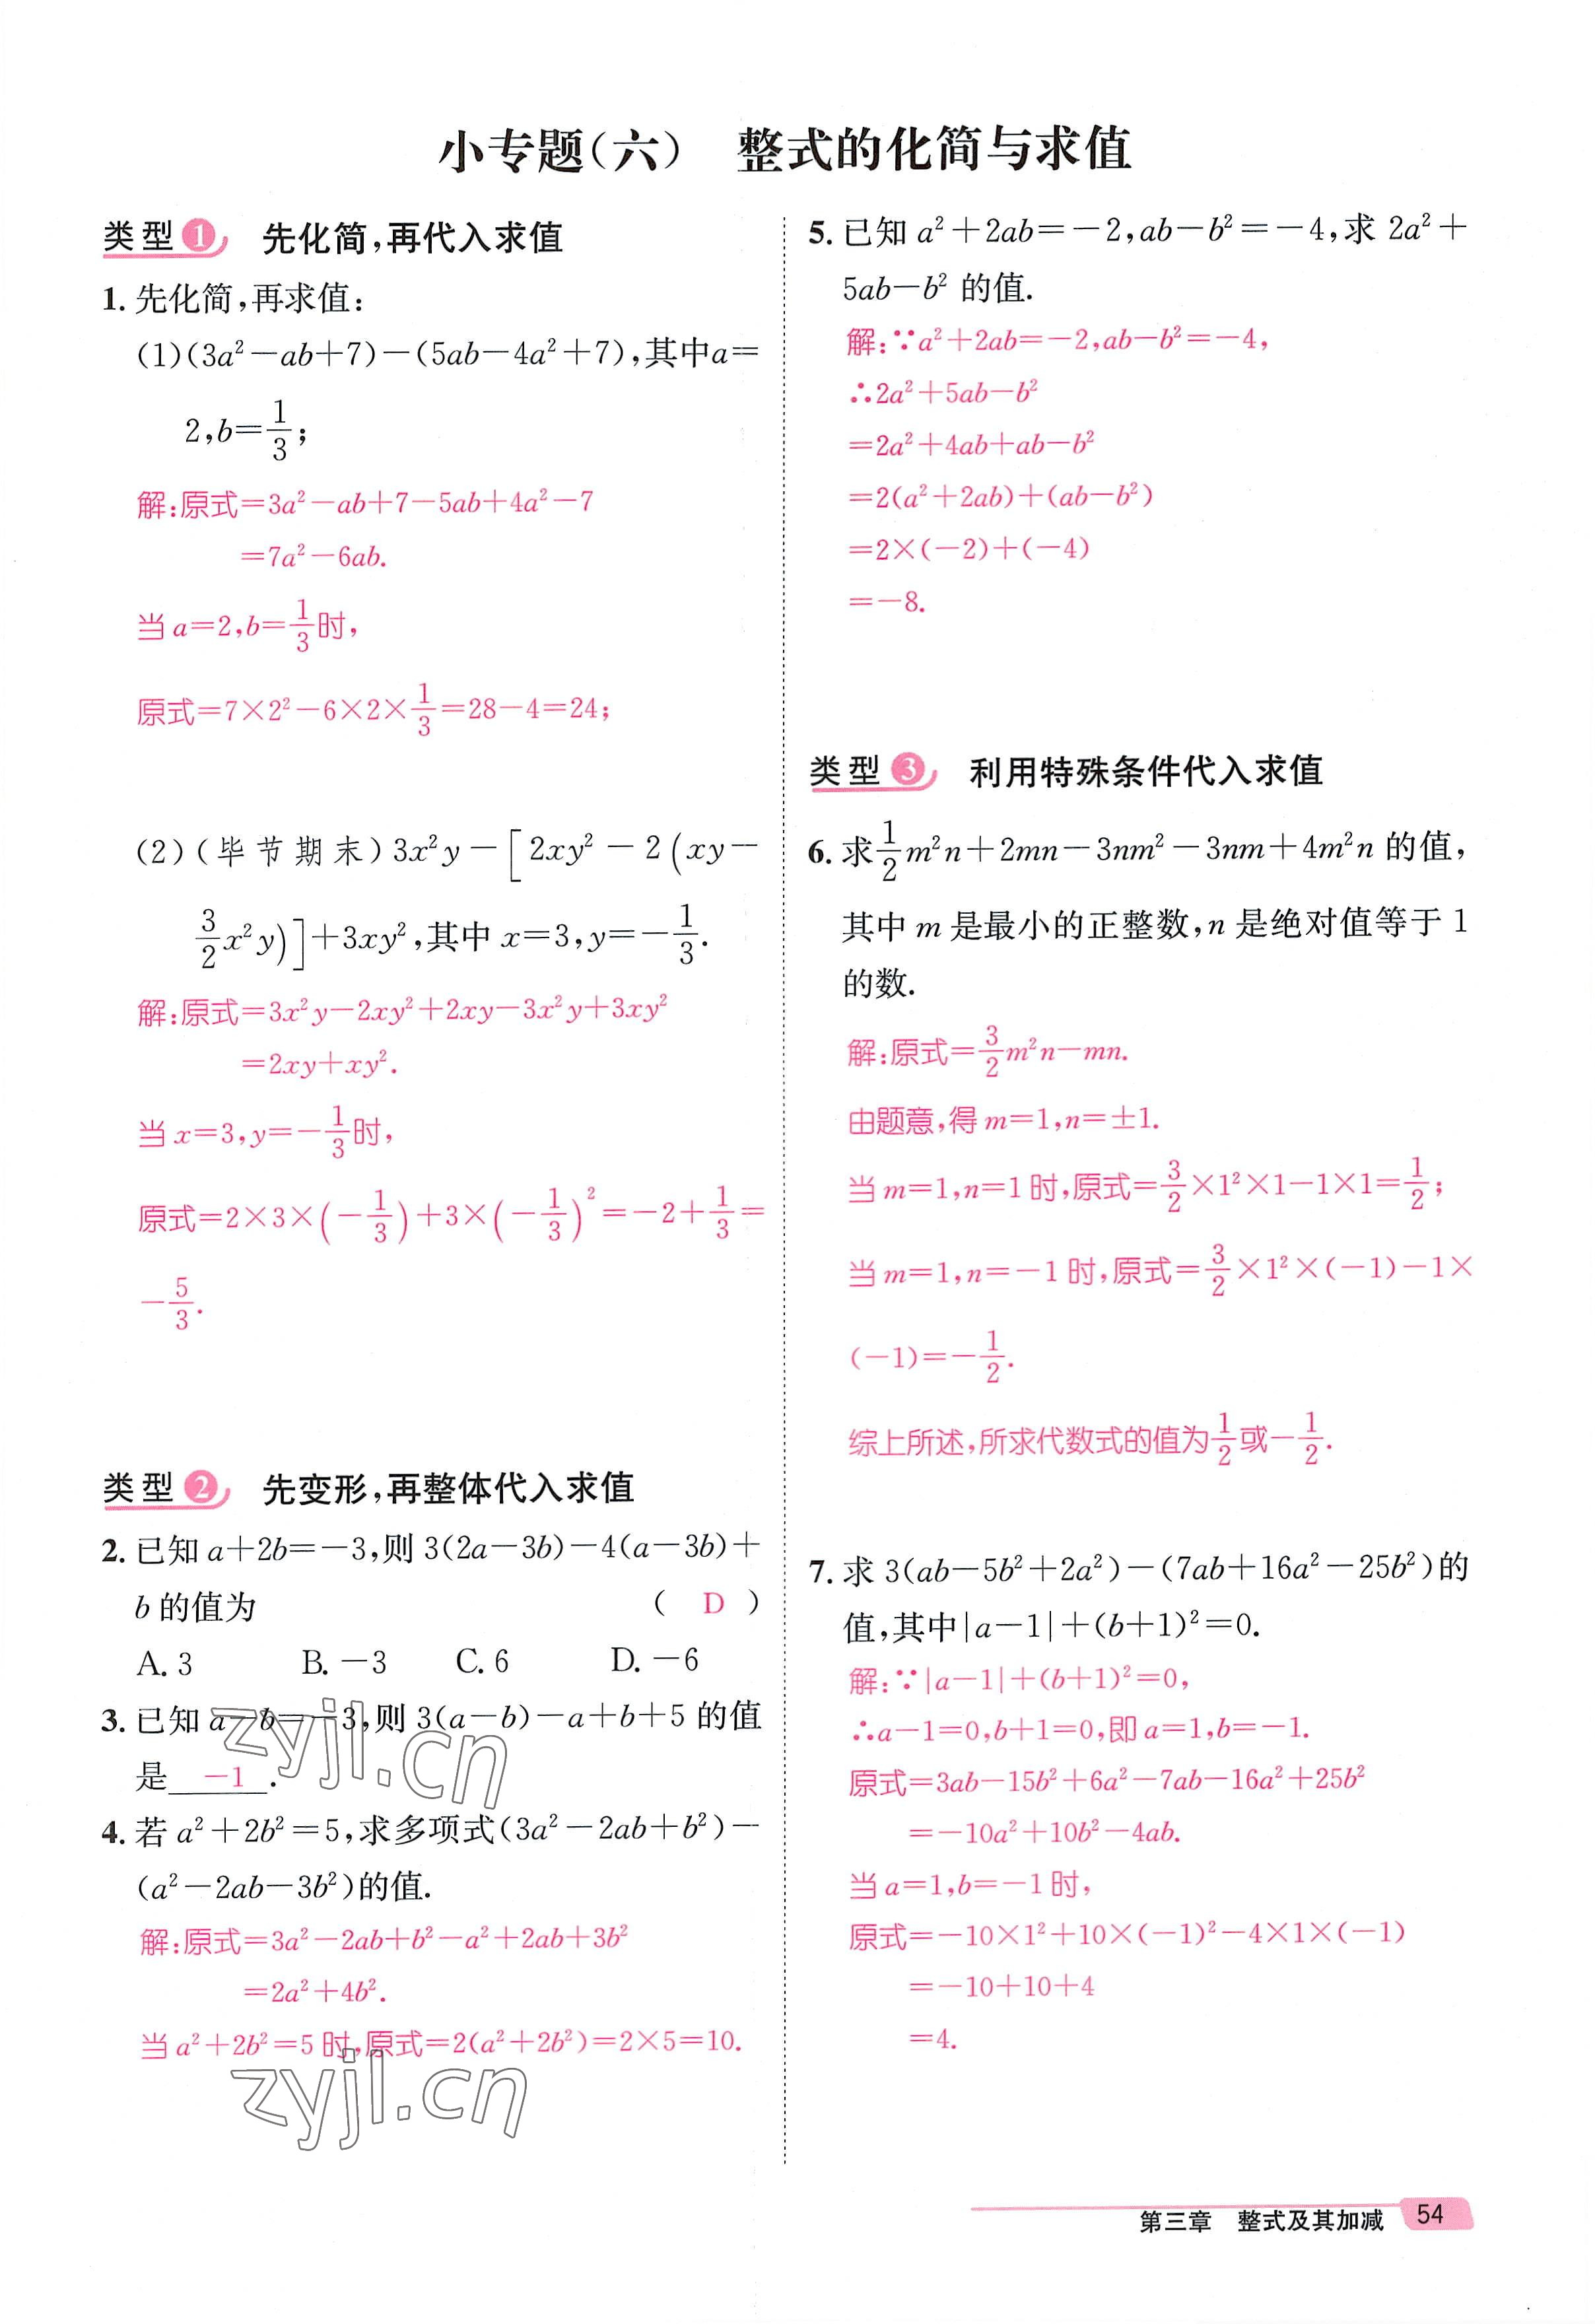 小专题(六) 整式的化简与求值
类型1 先化简,再代入求值
1. 先化简,再求值:
(1)(3a²-ab+7)-(5ab-4a²+7),其中a=
2,b=1/3;
解:原式=3a²-ab+7-5ab+4a²-7
=7a²-6ab.
当a=2,b=1/3时,
原式=7×2²-6×2×1/3=28-4=24;
(2)(毕节期末)3x²y-[2xy²-2(xy-
3/2x²y)]+3xy²,其中x=3,y=-1/3.
解:原式=3x²y-2xy²+2xy-3x²y+3xy²
=2xy+xy².
当x=3,y=-1/3时,
原式=2×3×(-1/3)+3×(-1/3)²=-2+1/3=
-5/3.
类型2 先变形,再整体代入求值
2. 已知a+2b=-3,则3(2a-3b)-4(a-3b)+
b的值为 ( D )
A. 3 B. -3 C. 6 D. -6
3. 已知a-b=-3,则3(a-b)-a+b+5的值
是 -1 .
4. 若a²+2b²=5,求多项式(3a²-2ab+b²)-
(a²-2ab-3b²)的值.
解:原式=3a²-2ab+b²-a²+2ab+3b²
=2a²+4b².
当a²+2b²=5时,原式=2(a²+2b²)=2×5=10.
zyjl.cn
zyjl.cn
5. 已知a²+2ab=-2,ab-b²=-4,求2a²+
5ab-b²的值.
解:∵a²+2ab=-2,ab-b²=-4,
∴2a²+5ab-b²
=2a²+4ab+ab-b²
=2(a²+2ab)+(ab-b²)
=2×(-2)+(-4)
=-8.
类型3 利用特殊条件代入求值
6. 求1/2m²n+2mn-3nm²-3nm+4m²n的值,
其中m是最小的正整数,n是绝对值等于1
的数.
解:原式=3/2m²n-mn.
由题意,得m=1,n=±1.
当m=1,n=1时,原式=3/2×1²×1-1×1=1/2;
当m=1,n=-1时,原式=3/2×1²×(-1)-1×
(-1)=-1/2.
综上所述,所求代数式的值为1/2或-1/2.
7. 求3(ab-5b²+2a²)-(7ab+16a²-25b²)的
值,其中|a-1|+(b+1)²=0.
解:∵|a-1|+(b+1)²=0,
∴a-1=0,b+1=0,即a=1,b=-1.
原式=3ab-15b²+6a²-7ab-16a²+25b²
=-10a²+10b²-4ab.
当a=1,b=-1时,
原式=-10×1²+10×(-1)²-4×1×(-1)
=-10+10+4
=4.
第三章 整式及其加减 54